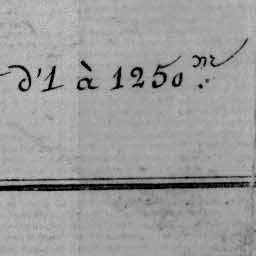 d'1 à 1250 me.